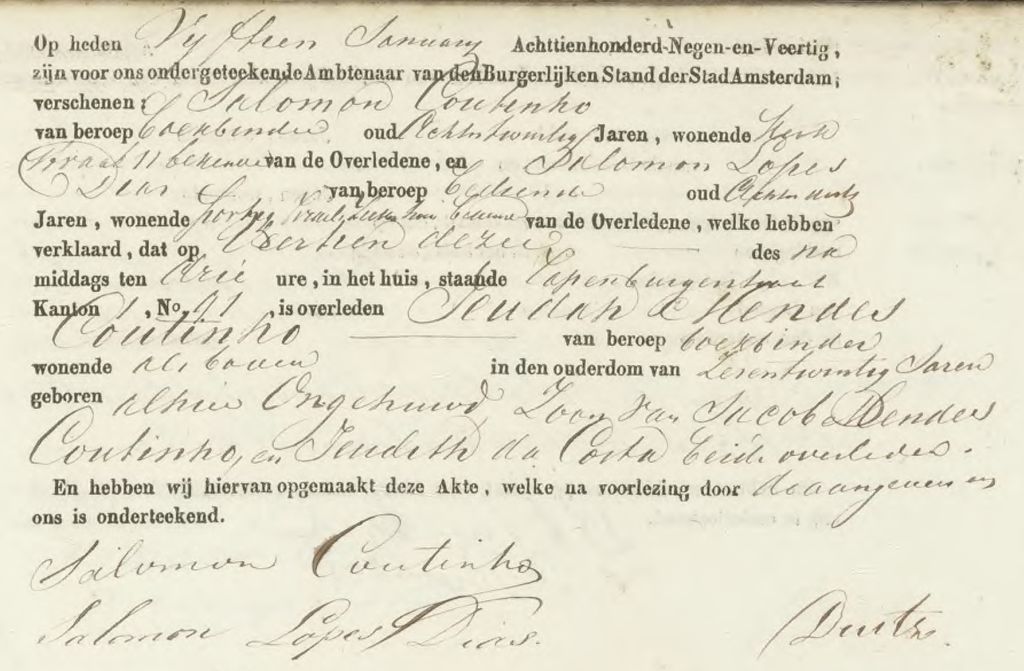 Op heden Vyftien January Achttienhonderd-Negen-en-Veertig,
zijn voor ons ondergeteekende Ambtenaar van den Burgerlijken Stand der Stad Amsterdam;
verschenen: Salomon Coutinho
van beroep boekbinder oud Achtentwintig Jaren, wonende Kerk
Straat 11 bekende van de Overledene, en Salomon Lopes
Dias van beroep bediende oud
Jaren, wonende bekende van de Overledene, welke hebben
verklaard, dat op Veertien dezer des na
middags ten drie ure, in het huis, staande Lapenburgerstraat
Kanton 1, No. 91, is overleden Jeudah Mendes
Coutinho van beroep boekbinder
wonende als boven in den ouderdom van Zesentwintig Jaren
geboren alhier Ongehuwd, Zoon van Jacob Mendes
Coutinho, en Jeudith da Costa beide overleden.
En hebben wij hiervan opgemaakt deze Akte, welke na voorlezing door de aangevers en
ons is onderteekend.
Salomon Coutinho
Salomon Lopes Dias.